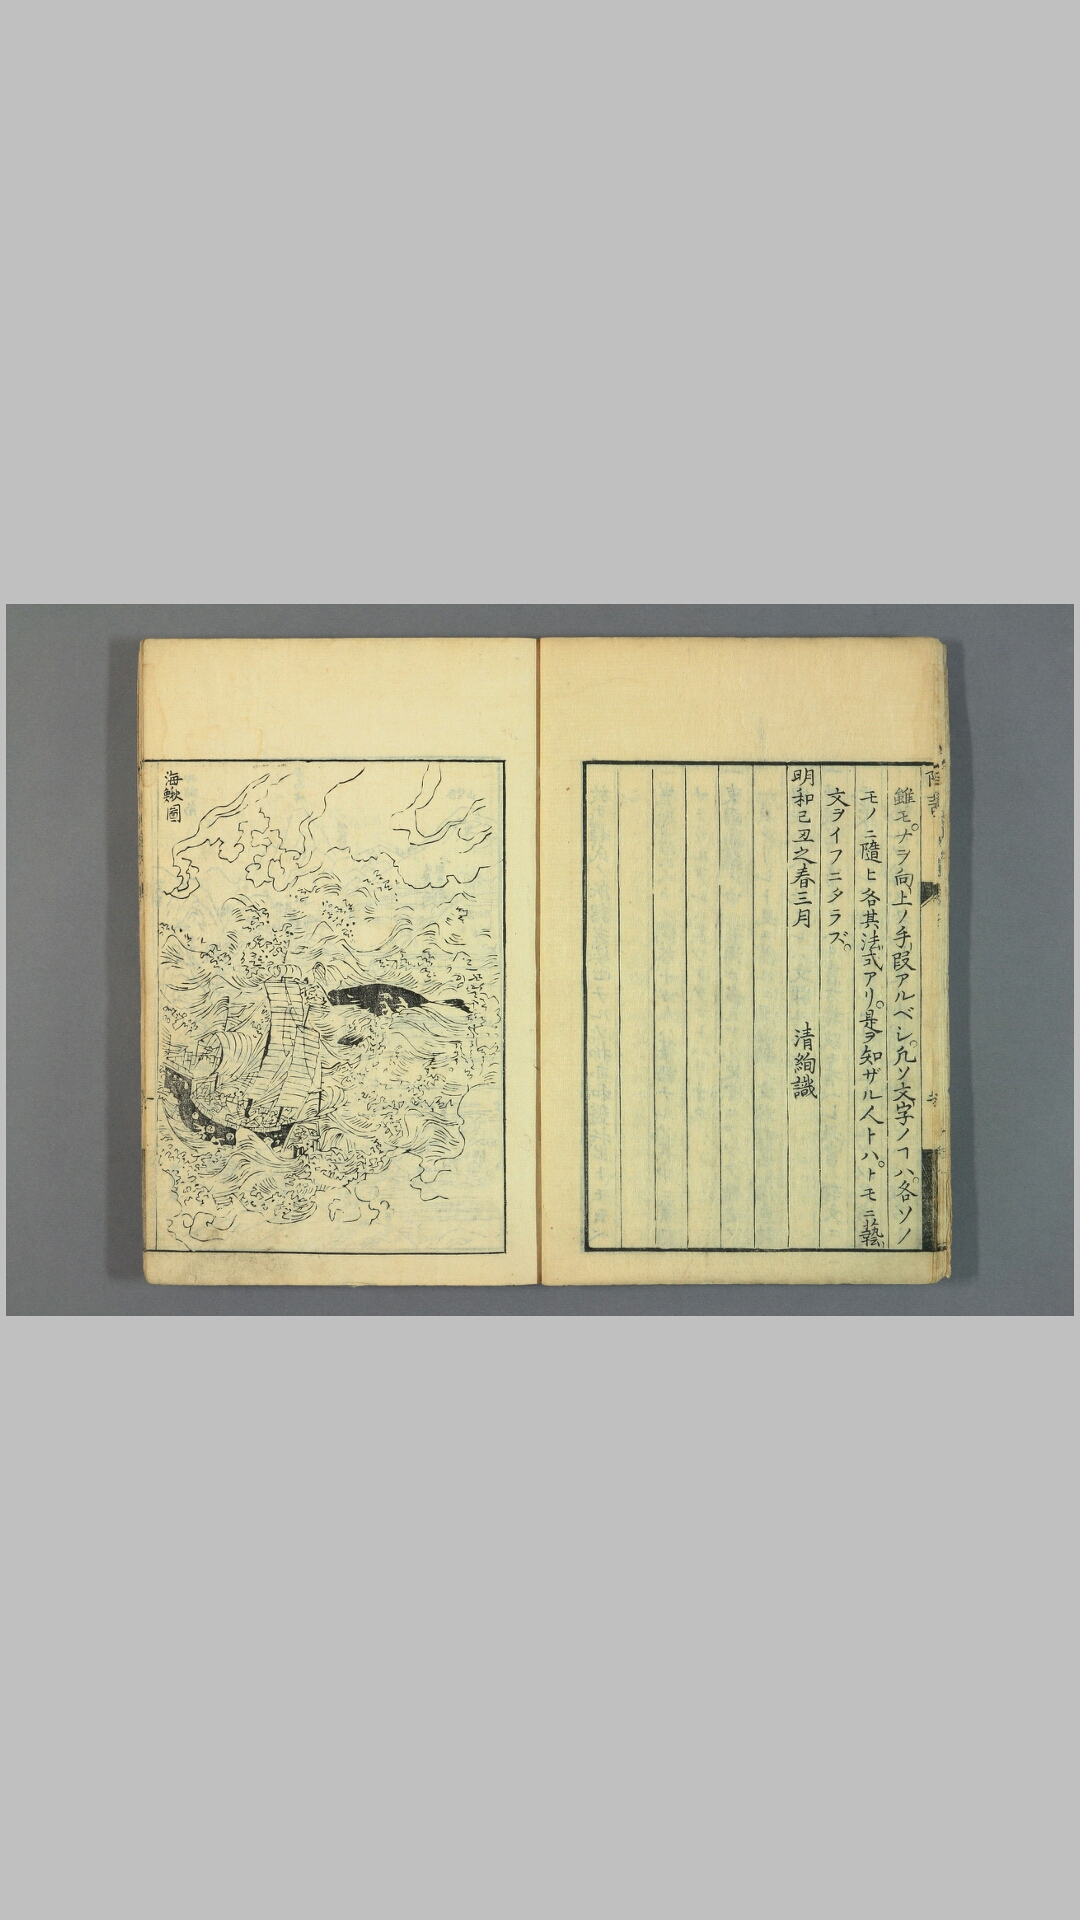 雖モ。ナヲ向上ノ手段アルベシ。凡ソ文字ノヿハ。各ソノ
モノニ隨ヒ各其法式アリ。是ヲ知ザル人トハ。トモニ藝
文ヲイフニタラズ。
明和己丑之春三月
清絢識
海鰍圖